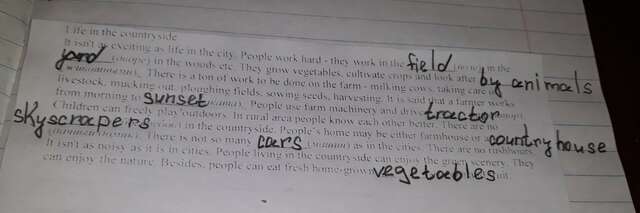 Life in the countryside.
It isn't as exciting as life in the city. People work hard - they work in the field (поле) in the
yard (дворе) in the woods etc. They grow vegetables, cultivate crops and look after by animals
There is a ton of work to be done on the farm - milking cows, taking care of
livestock, mucking out, ploughing fields, sowing seeds, harvesting. It is said that a farmer works
from morning to sunset People use farm machinery and drive tractor
Children can freely play outdoors. In rural area people know each other better. There are no
skyscrapers in the countryside. People's home may be either farmhouse or a country house
There is not so many cars in the cities. There are no rushhours.
It isn't as noisy as it is in cities. People living in the countryside can enjoy the scenery. They
can enjoy the nature. Besides, people can eat fresh home-grown vegetables